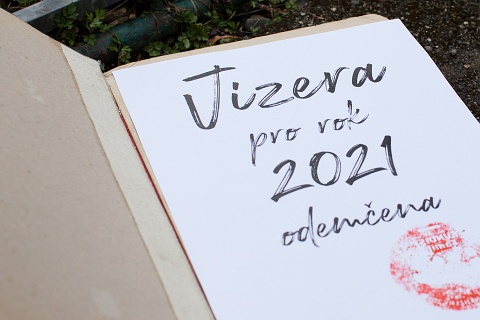 Jizera
pro rok
2021
odemčena